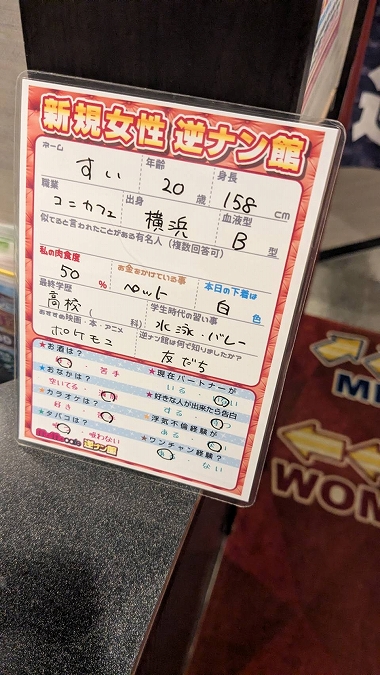 新規女性 逆ナン館
ネーム すい 年齢 20 歳 身長 158 cm
職業 コンカフェ 出身 横浜 血液型 B 型
似てると言われたことがある有名人(複数回答可)
私の肉食度 50 % お金をかけている事 ペット 本日の下着は 白 色
最終学歴 高校( 学生時代の習い事 水泳 バレー
おすすめ映画・本・アニメ 科) ポケモン 逆ナン館は何で知りましたか? 友だち
★お酒は? 苦手 ★現在パートナーが いる
★おなかは? 空いてる ★好きな人が出来たら告白 する
★カラオケは? 好き ★浮気不倫経験が ある
★タバコは? 吸わない ★ワンチャン経験? ない
cafe 逆ナン館
ME
WOM